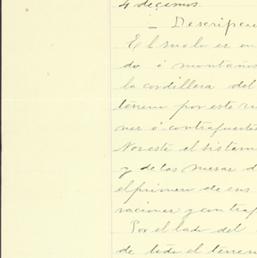 4 decimos.
— Descripcio
El suelo es on
do ó montaños
la cordillera del
terreno por este ru
ner ó contrafuertes
Noreste el sistem
y de las mesas d
el primero de sus
raciones y contraf
Por el lado del
de todo el terren